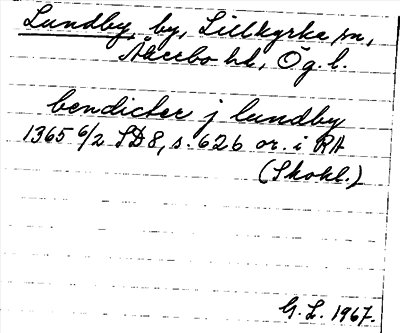 Lundby, by, Lillkyrka sn,
Åkerbo hd, Ög l.
bendicter j lundby
1365 6/2 SD 8, s. 626 or. i RA
(Skokl.)
G. L. 1967.